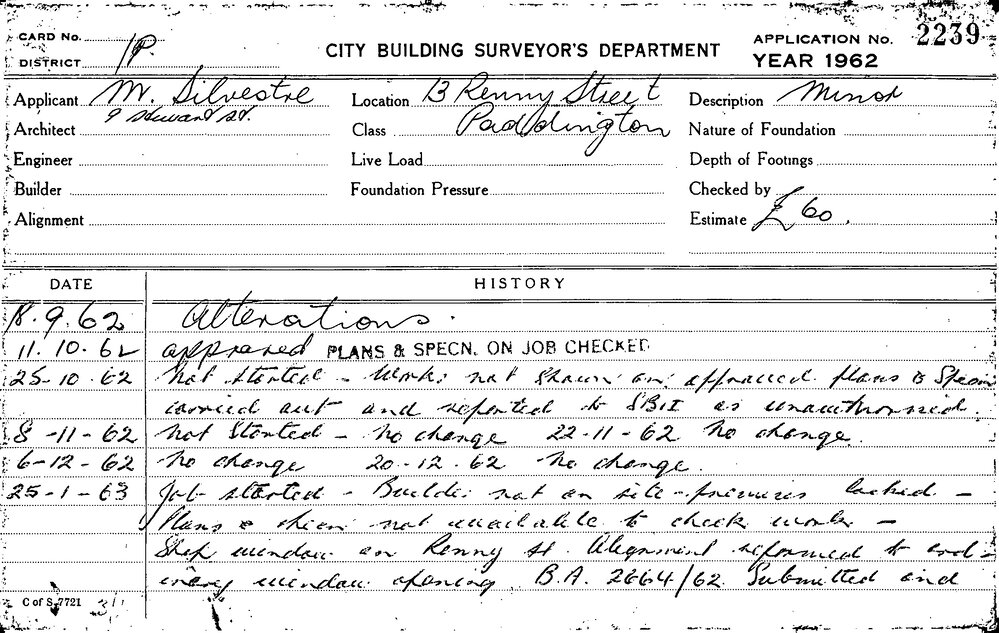 CARD No.
DISTRICT 1P.
CITY BUILDING SURVEYOR'S DEPARTMENT
APPLICATION No. 2239
YEAR 1962
Applicant M. Silvestre
Location 13 Renny Street
Description Minor
Architect 9 Steward St.
Class Paddington
Nature of Foundation
Engineer
Live Load
Depth of Footings
Builder
Foundation Pressure
Checked by
Alignment
Estimate £60.
DATE HISTORY
18.9.62 Alterations.
11.10.62 approved PLANS & SPECN. ON JOB CHECKED
25-10.62 Not started - Works not shown on approved plans & Specn
carried out and reported to SBI as unauthorised.
8-11-62 Not Started - No change 22-11-62 No change.
6-12-62 No change 20-12.62 No change.
25-1-63 Job started - Builder not on site - premises locked -
Plans & specn not available to check work -
Shop window on Renny St. Alignment reformed to ord-
inary window opening B.A. 2664/62 Submitted and
C of S. 7721